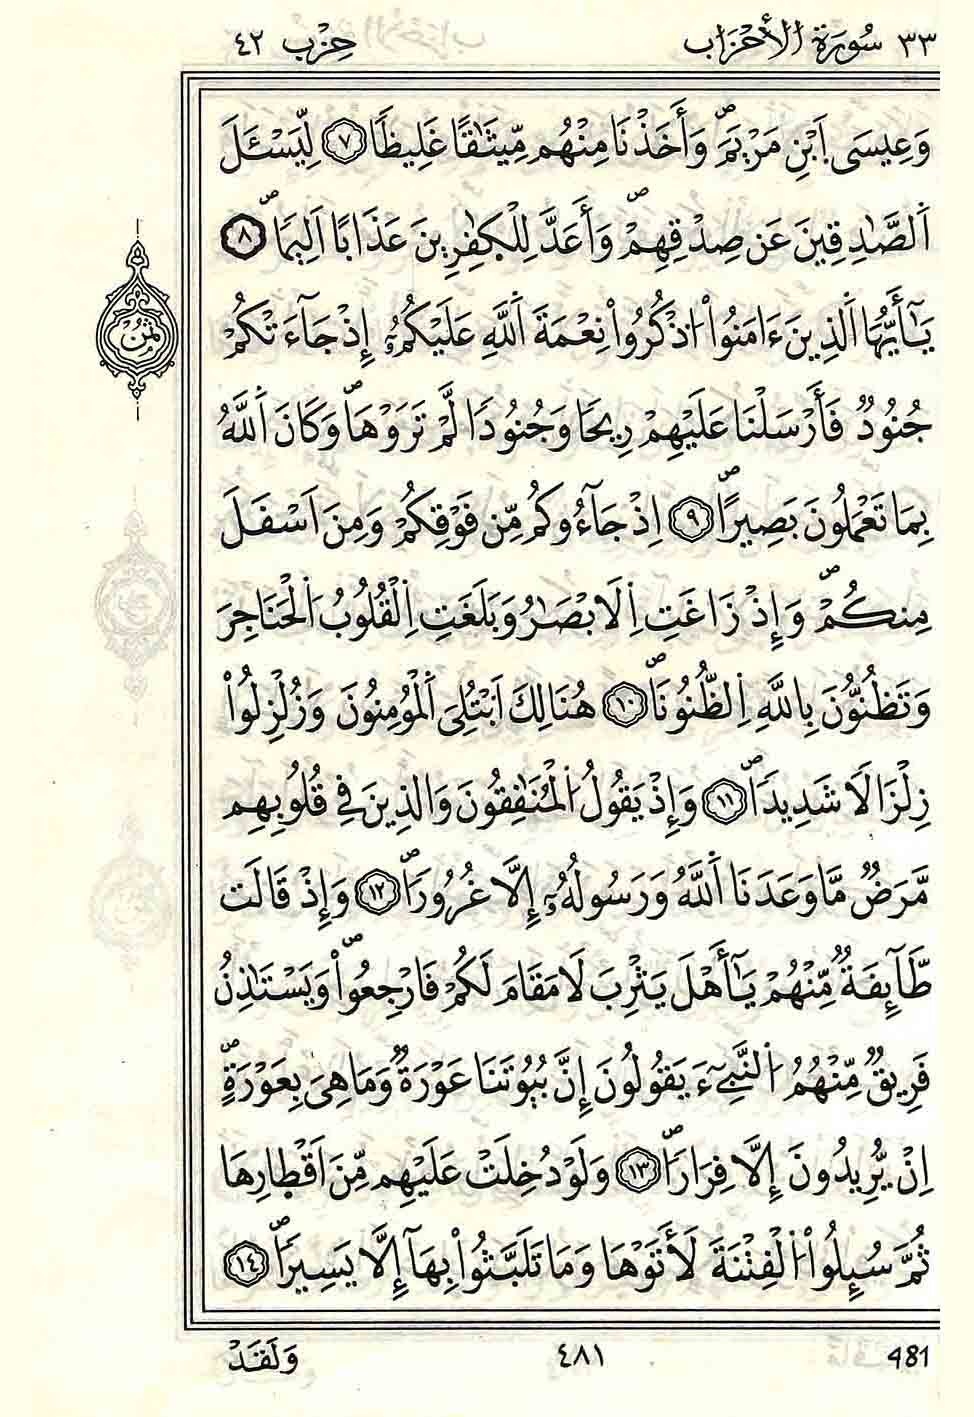 ٣٣ سُورَةُ الأَحْزَاب حِزْب ٤٢
وَعِيسَى اَبْنِ مَرْيَمَۖ وَأَخَذْنَا مِنْهُم مِّيثَٰقًا غَلِيظًا ٧ لِّيَسْـَٔلَ
اَلصَّٰدِقِينَ عَن صِدْقِهِمْۖ وَأَعَدَّ لِلْكٰفِرِينَ عَذَابًا اَلِيمًاۖ ٨
يَٰٓأَيُّهَا اَلذِينَ ءَامَنُواْ اُذْكُرُواْ نِعْمَةَ اَللَّهِ عَلَيْكُمُۥٓ إِذْ جَآءَتْكُمْ
جُنُودٌ فَأَرْسَلْنَا عَلَيْهِمْ رِيحًا وَجُنُودًا لَّمْ تَرَوْهَاۖ وَكَانَ اَللَّهُ
بِمَا تَعْمَلُونَ بَصِيرًاۖ ٩ اِذْ جَآءُوكُم مِّن فَوْقِكُمْ وَمِنَ اَسْفَلَ
مِنكُمْۖ وَإِذْ زَاغَتِ اِلَابْصَٰرُ وَبَلَغَتِ اِلْقُلُوبُ اُلْحَنَاجِرَ
وَتَظُنُّونَ بِاللَّهِ اِلظُّنُونَاۖ ١٠ هُنَالِكَ اَبْتُلِيَ اَلْمُومِنُونَ وَزُلْزِلُواْ
زِلْزَالًا شَدِيدًاۖ ١١ وَإِذْ يَقُولُ اُلْمُنَٰفِقُونَ وَالذِينَ فِي قُلُوبِهِم
مَّرَضٌ مَّا وَعَدَنَا اَللَّهُ وَرَسُولُهُۥٓ إِلَّا غُرُورًاۖ ١٢ وَإِذْ قَالَت
طَّآئِفَةٌ مِّنْهُمْ يَٰٓأَهْلَ يَثْرِبَ لَا مَقَامَ لَكُمْ فَارْجِعُواْۖ وَيَسْتَٰذِنُ
فَرِيقٌ مِّنْهُمُ اُلنَّبِيٓءَ يَقُولُونَ إِنَّ بُيُوتَنَا عَوْرَةٌ وَمَا هِيَ بِعَوْرَةٍۖ
اِنْ يُّرِيدُونَ إِلَّا فِرَارًاۖ ١٣ وَلَوْ دُخِلَتْ عَلَيْهِم مِّنَ اَقْطِارِهَا
ثُمَّ سُئِلُواْ اُلْفِتْنَةَ لَأَتَوْهَا وَمَا تَلَبَّثُواْ بِهَآ إِلَّا يَسِيرًاۖ ١٤
ثمُن
وَلَقَدْ ٤٨١ 481